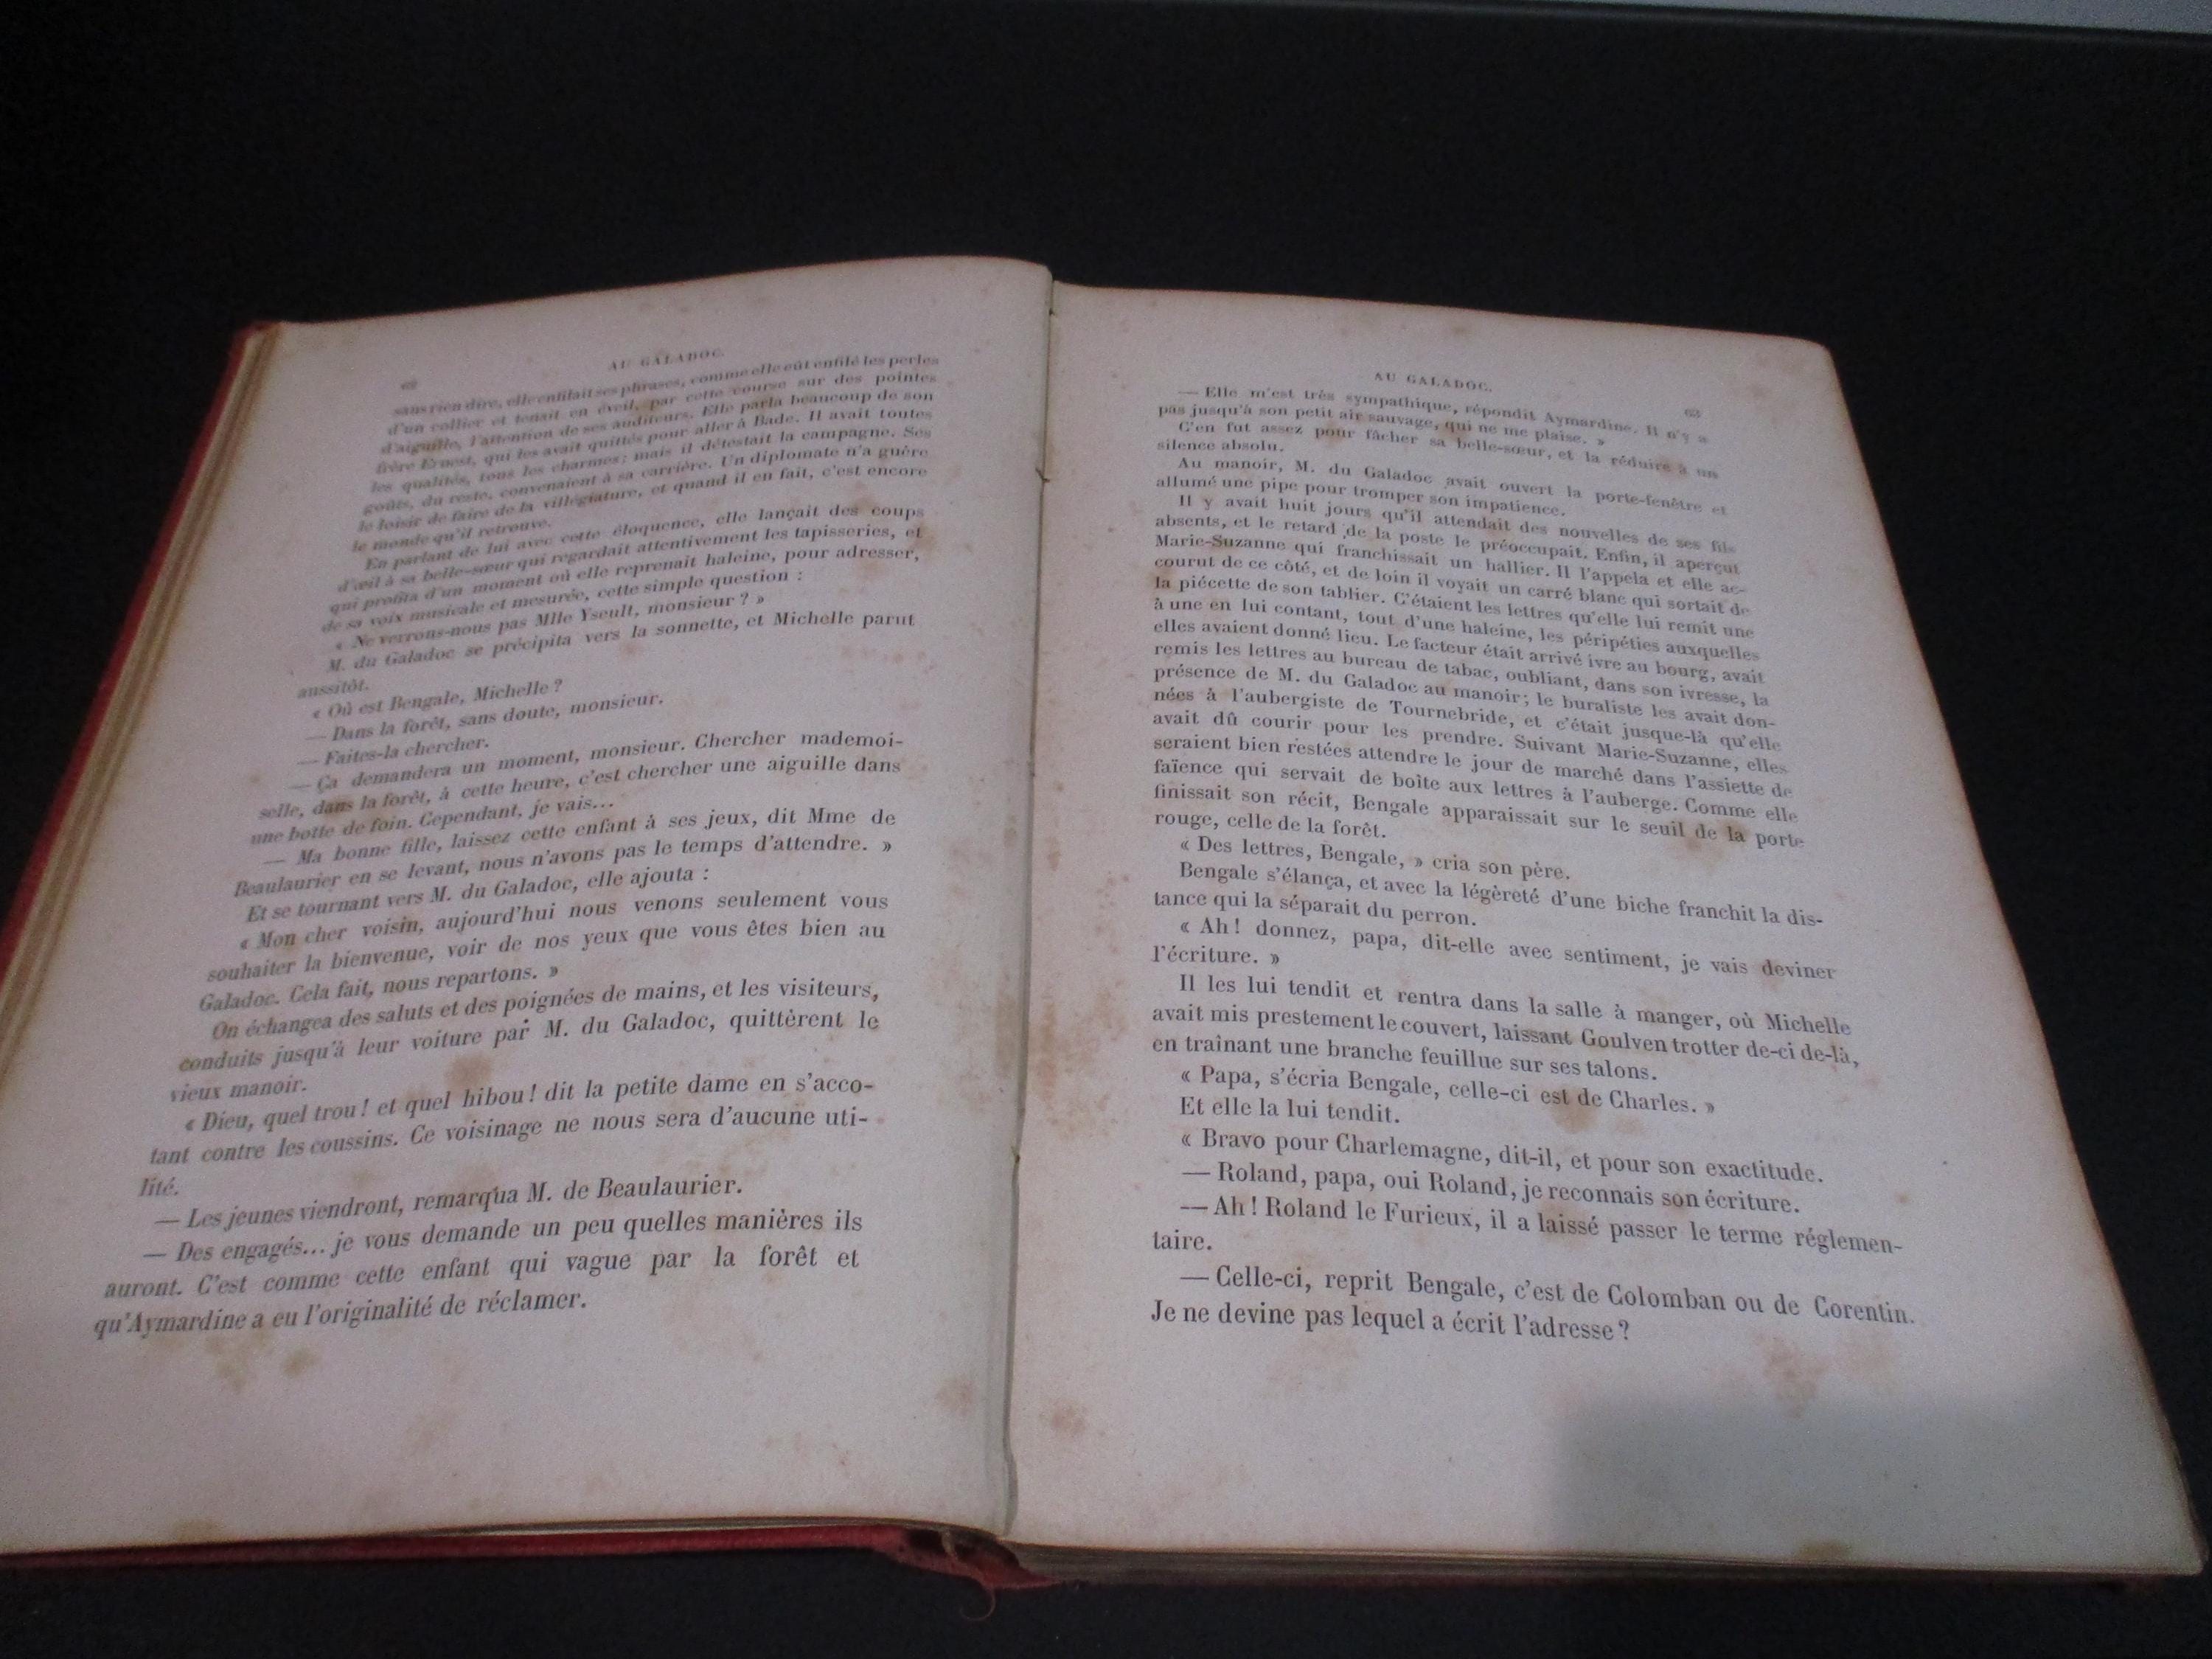 AU GALADOC.
sans rien dire, elle enfilait ses phrases, comme elle eût enfilé les perles
d'un collier et tenait en éveil, par cette course sur des pointes
d'aiguille, l'attention de ses auditeurs. Elle parla beaucoup de son
frère Ernest, qui les avait quittés pour aller à Bade. Il avait toutes
les qualités, tous les charmes; mais il détestait la campagne. Ses
goûts, du reste, convenaient à sa carrière. Un diplomate n'a guère
le loisir de faire de la villégiature, et quand il en fait, c'est encore
le monde qu'il retrouve.
En parlant de lui avec cette éloquence, elle lançait des coups
d'œil à sa belle-sœur qui regardait attentivement les tapisseries, et
qui profita d'un moment où elle reprenait haleine, pour adresser,
de sa voix musicale et mesurée, cette simple question :
« Ne verrons-nous pas Mlle Yseult, monsieur ? »
M. du Galadoc se précipita vers la sonnette, et Michelle parut
aussitôt.
« Où est Bengale, Michelle ?
— Dans la forêt, sans doute, monsieur.
— Faites-la chercher.
— Ça demandera un moment, monsieur. Chercher mademoi-
selle, dans la forêt, à cette heure, c'est chercher une aiguille dans
une botte de foin. Cependant, je vais...
— Ma bonne fille, laissez cette enfant à ses jeux, dit Mme de
Beaulaurier en se levant, nous n'avons pas le temps d'attendre. »
Et se tournant vers M. du Galadoc, elle ajouta :
« Mon cher voisin, aujourd'hui nous venons seulement vous
souhaiter la bienvenue, voir de nos yeux que vous êtes bien au
Galadoc. Cela fait, nous repartons. »
On échangea des saluts et des poignées de mains, et les visiteurs,
conduits jusqu'à leur voiture par M. du Galadoc, quittèrent le
vieux manoir.
« Dieu, quel trou ! et quel hibou ! dit la petite dame en s'acco-
tant contre les coussins. Ce voisinage ne nous sera d'aucune uti-
lité.
— Les jeunes viendront, remarqua M. de Beaulaurier.
— Des engagés... je vous demande un peu quelles manières ils
auront. C'est comme cette enfant qui vague par la forêt et
qu'Aymardine a eu l'originalité de réclamer.
AU GALADOC.
63
— Elle m'est très sympathique, répondit Aymardine. Il n'y a
pas jusqu'à son petit air sauvage, qui ne me plaise. »
C'en fut assez pour fâcher sa belle-sœur, et la réduire à un
silence absolu.
Au manoir, M. du Galadoc avait ouvert la porte-fenêtre et
allumé une pipe pour tromper son impatience.
Il y avait huit jours qu'il attendait des nouvelles de ses fils
absents, et le retard de la poste le préoccupait. Enfin, il aperçut
Marie-Suzanne qui franchissait un hallier. Il l'appela et elle ac-
courut de ce côté, et de loin il voyait un carré blanc qui sortait de
la piécette de son tablier. C'étaient les lettres qu'elle lui remit une
à une en lui contant, tout d'une haleine, les péripéties auxquelles
elles avaient donné lieu. Le facteur était arrivé ivre au bourg, avait
remis les lettres au bureau de tabac, oubliant, dans son ivresse, la
présence de M. du Galadoc au manoir; le buraliste les avait don-
nées à l'aubergiste de Tournebride, et c'était jusque-là qu'elle
avait dû courir pour les prendre. Suivant Marie-Suzanne, elles
seraient bien restées attendre le jour de marché dans l'assiette de
faïence qui servait de boîte aux lettres à l'auberge. Comme elle
finissait son récit, Bengale apparaissait sur le seuil de la porte
rouge, celle de la forêt.
« Des lettres, Bengale, » cria son père.
Bengale s'élança, et avec la légèreté d'une biche franchit la dis-
tance qui la séparait du perron.
« Ah ! donnez, papa, dit-elle avec sentiment, je vais deviner
l'écriture. »
Il les lui tendit et rentra dans la salle à manger, où Michelle
avait mis prestement le couvert, laissant Goulven trotter de-ci de-là,
en traînant une branche feuillue sur ses talons.
« Papa, s'écria Bengale, celle-ci est de Charles. »
Et elle la lui tendit.
« Bravo pour Charlemagne, dit-il, et pour son exactitude.
— Roland, papa, oui Roland, je reconnais son écriture.
— Ah ! Roland le Furieux, il a laissé passer le terme réglemen-
taire.
— Celle-ci, reprit Bengale, c'est de Colomban ou de Corentin.
Je ne devine pas lequel a écrit l'adresse ?